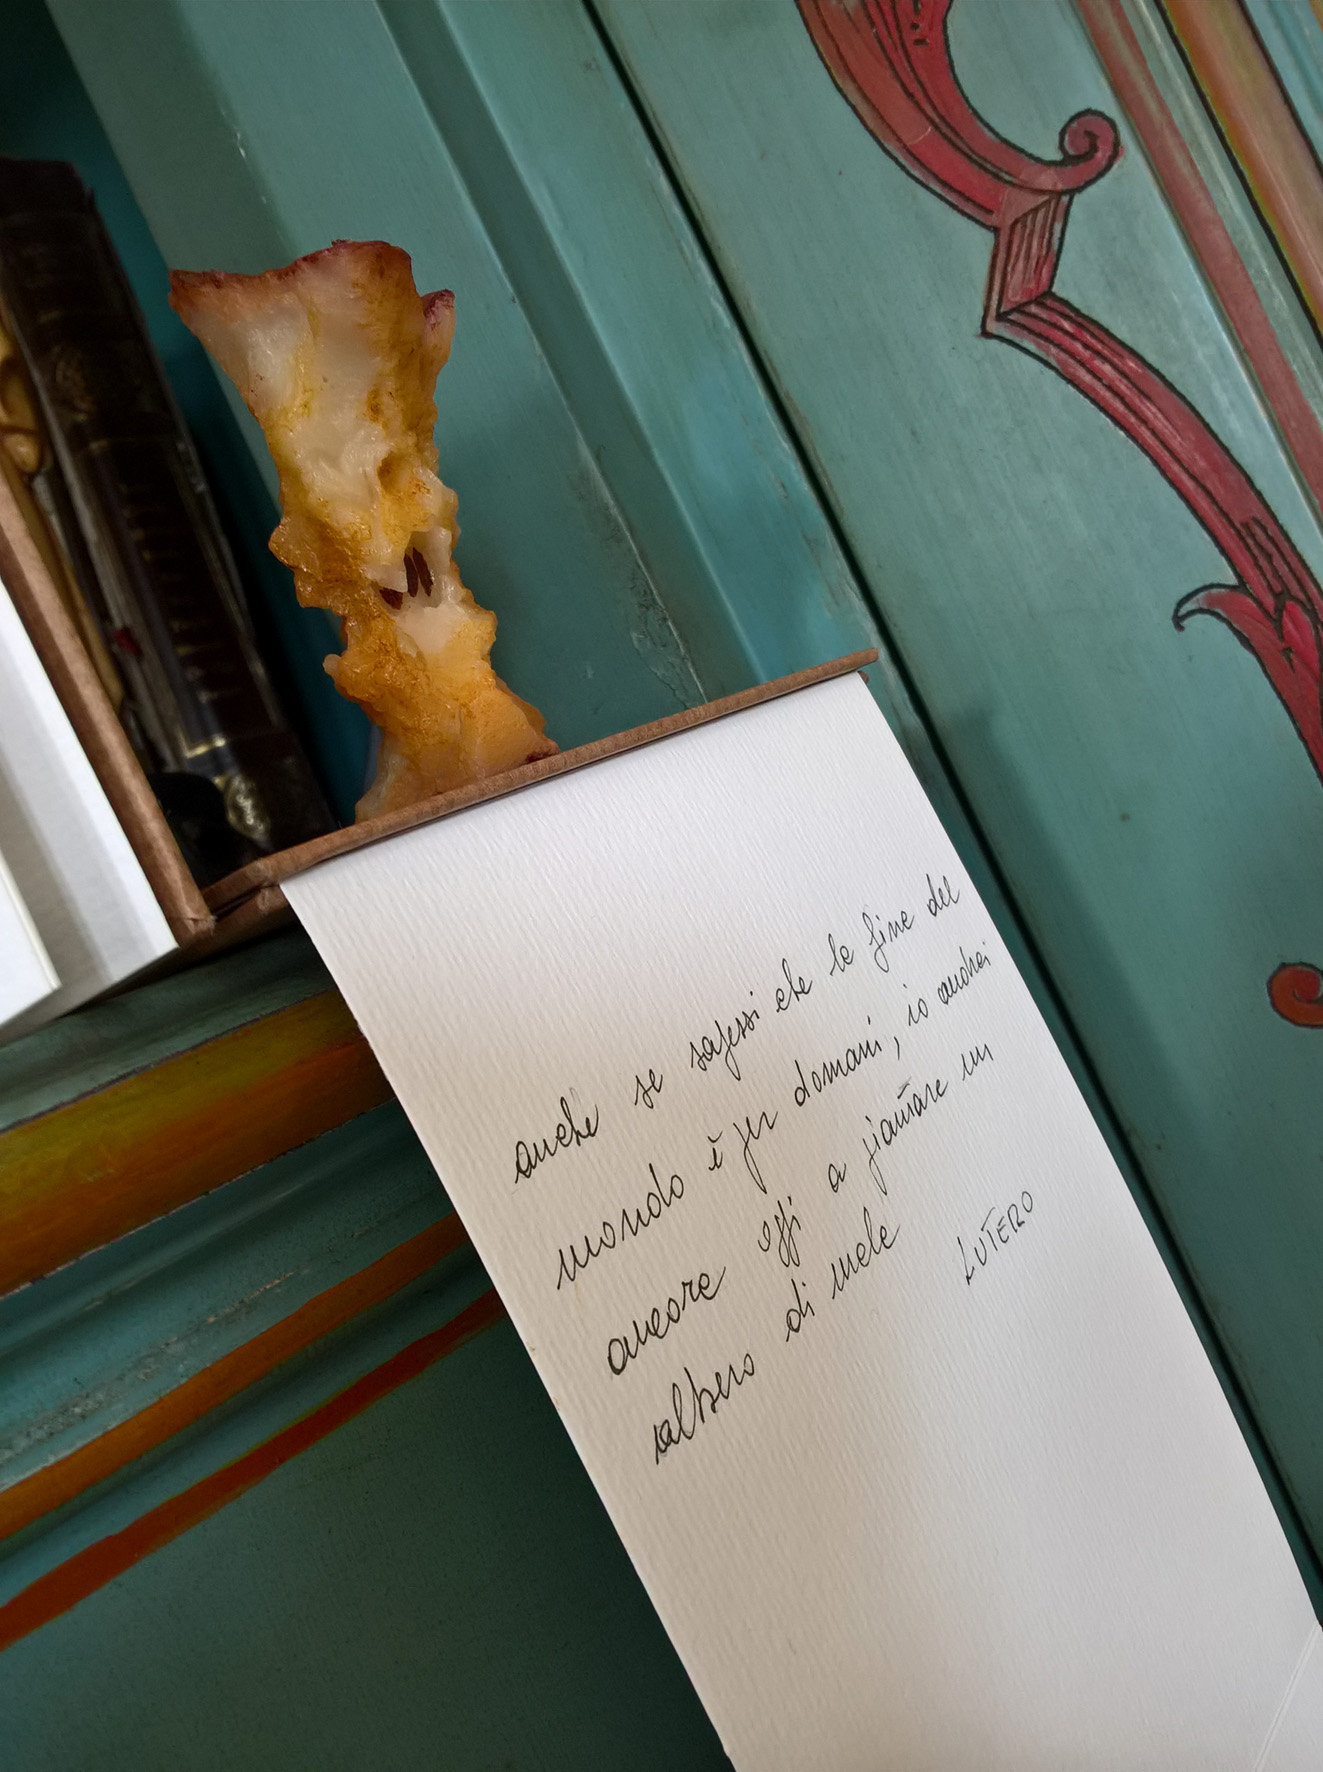 anche se sapessi che la fine del
mondo è per domani, io andrei
ancora oggi a piantare un
albero di mele
LUTERO